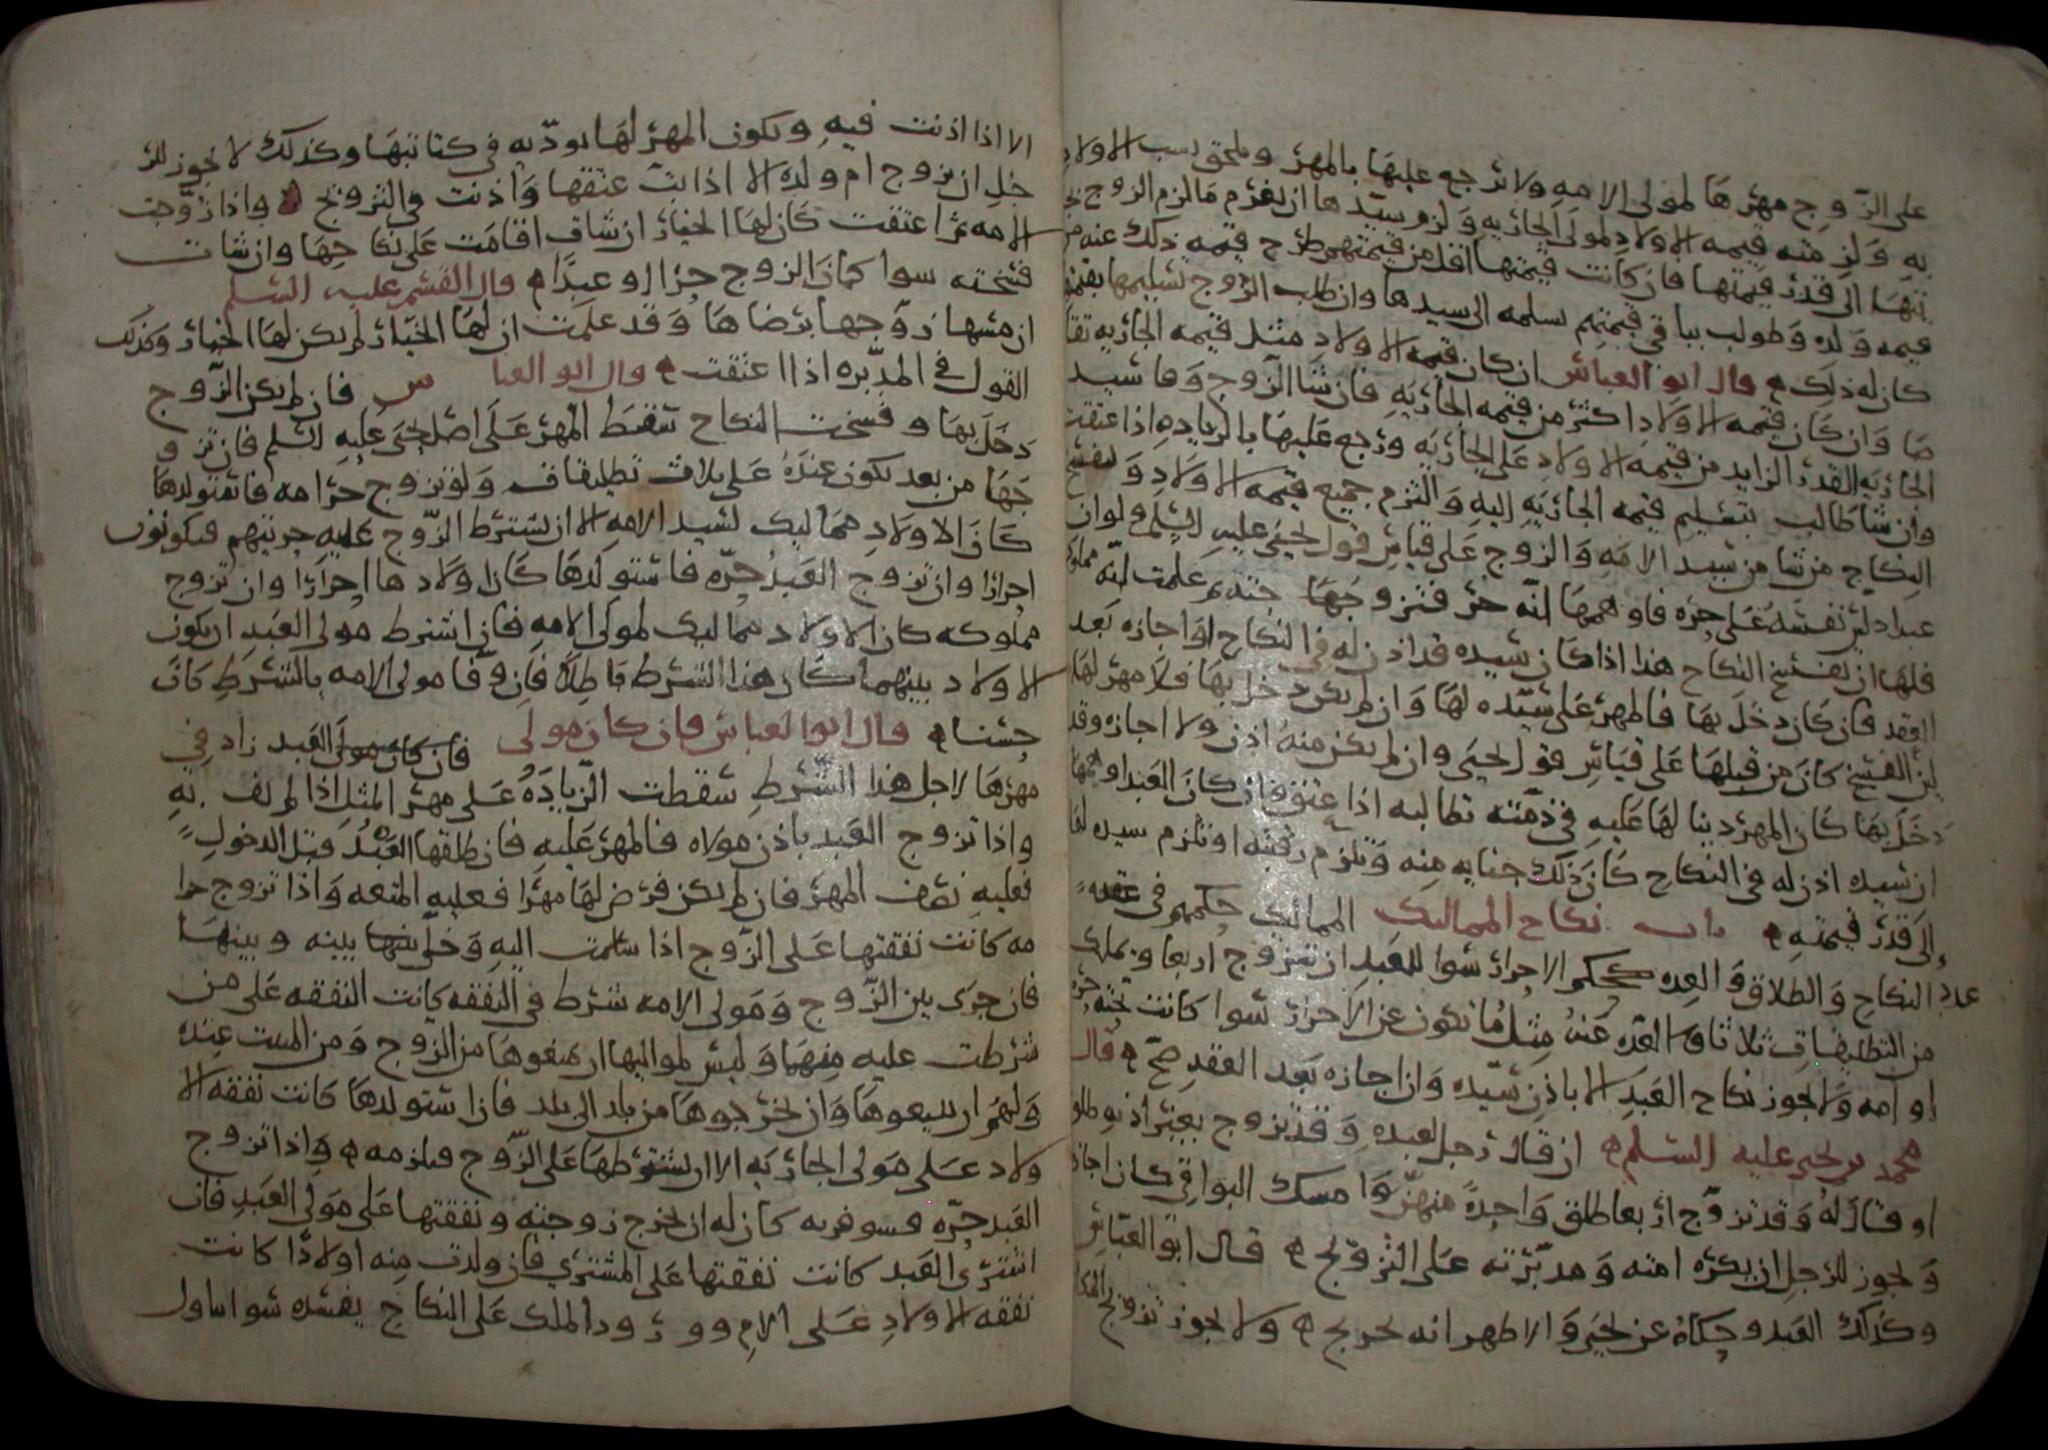 على الزوج مهرها لمولى الامه ولا ترجع عليها بالمهر ويلحق نسب الاولاد
به ولزمته قيمه الاولاد لمولى الجاريه ولزم سيدها ان يغرم ما لزم الزوج
بينها الى قدر قيمتها فان كانت قيمتها اقل من قيمتهم طرح قيمه ذلك عنه من
قيمه ولده وطولب بباقي قيمتهم يسلمه الى سيدها وان طلب الزوج تسليمها بقيمتها
كان له ذلك قال ابو العباس ان كان قيمه الاولاد مثل قيمه الجاريه تقا
صا وان كان قيمه الاولاد اكثر من قيمه الجاريه فان شا الزوج وفا سيد
الجاريه القدر الزايد من قيمه الاولاد على الجاريه ورجع عليها بالزياده اذا عتقت
وان شا طالب بتسليم قيمه الجاريه اليه والتزم جميع قيمه الاولاد ويفسخ
النكاح من شا من سيد الامه والزوج على قياس قول يحيى عليه السلم ولو ان
عبدا دلس نفسه على حره فاوهمها انه حر فتزوجها جنه ثم علمت انه مملوك
فلها ان تفسخ النكاح هذا اذا كان سيده قد اذن له في النكاح او اجازه بعد
العقد فان كان دخل بها فالمهر على سيده لها وان لم يكن دخل بها فلا مهر لها
لان الفسخ كان من قبلها على قياس قول يحيى وان لم يكن منه اذن ولا اجازه وقد
دخل بها كان المهر دينا لها عليه في ذمته تطالبه اذا عتق فان كان العبد اوهمها
ان سيده اذن له في النكاح كان ذلك جنايه منه وتلزم رقبته او تلزم سيده لها
الى قدر قيمته باب نكاح المماليك المماليك حكمهم في عقده
عدد النكاح والطلاق والعده كحكم الاحرار سوا للعبد ان يتزوج اربعا ويملك
من التطليقات ثلاثا والعده عنه مثل ما تكون عن الاحرار سوا كانت تحته حره
او امه ولا يجوز نكاح العبد الا باذن سيده وان اجازه بعد العقد صح قال
محمد بن يحيى عليه السلم ان قال رجل لعبده وقد تزوج بغير اذنه طلق
او قال له وقد تزوج اربعا طلق واحدة منهن وامسك البواقي كان اجازه
ويجوز للرجل ان يكره امته ومدبرته على التزويج قال ابو العباس
وكذلك العبد وحكاه عن يحيى والاظهر انه تحريج ولا يجوز تزويج المكا
الا اذا اذنت فيه ويكون المهر لها يوديه في كتابتها وكذلك لا يجوز للر
جل ان يزوج ام ولده الا اذا بت عتقها واذنت في التزويج واذا تزوجت
الامه ثم اعتقت كان لها الخيار ان شات اقامت على نكاحها وان شات
فسخته سوا كان الزوج حرا او عبدا قال القسم عليه السلم
ان مسها زوجها برضاها وقد علمت ان لها الخيار لم يكن لها الخيار وكذلك
القول في المدبره اذا اعتقت قال ابو العبا س فان لم يكن الزوج
دخل بها وفسخت النكاح سقط المهر على اصل يحيى عليه السلم فان تزو
جها من بعد تكون عنده على ثلاث تطليقات ولو تزوج حر امه فاستولدها
كان الاولاد مماليك لسيد الامه الا ان يشترط الزوج عليه حريتهم فيكونون
احرارا وان تزوج العبد حره فاستولدها كان اولادها احرارا وان تزوج
مملوكه كان الاولاد مماليك لمولى الامه فان اشترط مولى العبد ان يكون
الاولاد بينهما كان هذا الشرط باطلا فان وفا مولى الامه بالشرط كان
حسنا قال ابو العباس فان كان مولى فان كان مولى العبد زاد في
مهرها لاجل هذا الشرط سقطت الزياده على مهر المثل اذا لم يف به
واذا تزوج العبد باذن مولاه فالمهر عليه فان طلقها العبد قبل الدخول
فعليه نصف المهر فان لم يكن فرض لها مهرا فعليه المتعه واذا تزوج حر ا
مه كانت نفقتها على الزوج اذا سلمت اليه وخلي بينها بينه وبينها
فان جرى بين الزوج ومولى الامه شرط في النفقه كانت النفقه على من
شرطت عليه منهما وليس لمواليها ان يمنعوها من الزوج ومن المبيت عنده
ولهم ان يبيعوها وان يخرجوها من بلد الى بلد فان استولدها كانت نفقه الا
ولاد على مولى الجاريه الا ان يشترطها على الزوج فيلزمه واذا تزوج
العبد حره فسوفر به كان له ان يخرج زوجته ونفقتها على مولى العبد فان
اشترى العبد كانت نفقتها على المشتري فان ولدت منه اولادا كانت
نفقه الاولاد على الام وورود الملك على النكاح يفسده سوا تناول